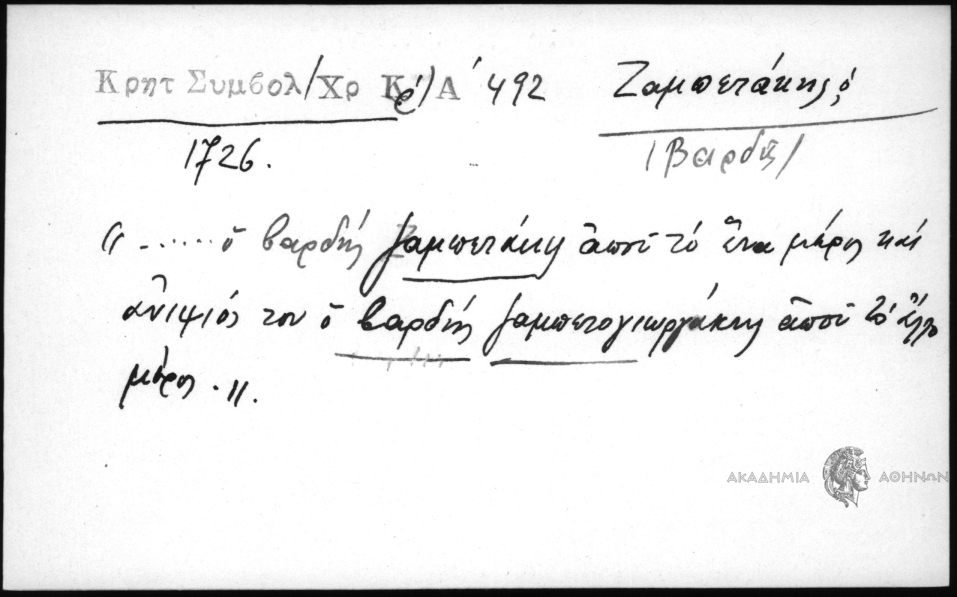 Κρητ Συμβολ/Χρ Κρ/Α΄ 492 Ζαμπετάκης, ὁ
1726. /Βαρδῆς/
"......ὁ βαρδής ζαμπετάκης ἀποῦ τό ἕνα μέρος καί
ἀνιψιός του ὁ βαρδής ζαμπετογιωργάκης ἀποῦ τό ἄλλο
μέρος.".
ΑΚΑΔΗΜΙΑ ΑΘΗΝΩΝ